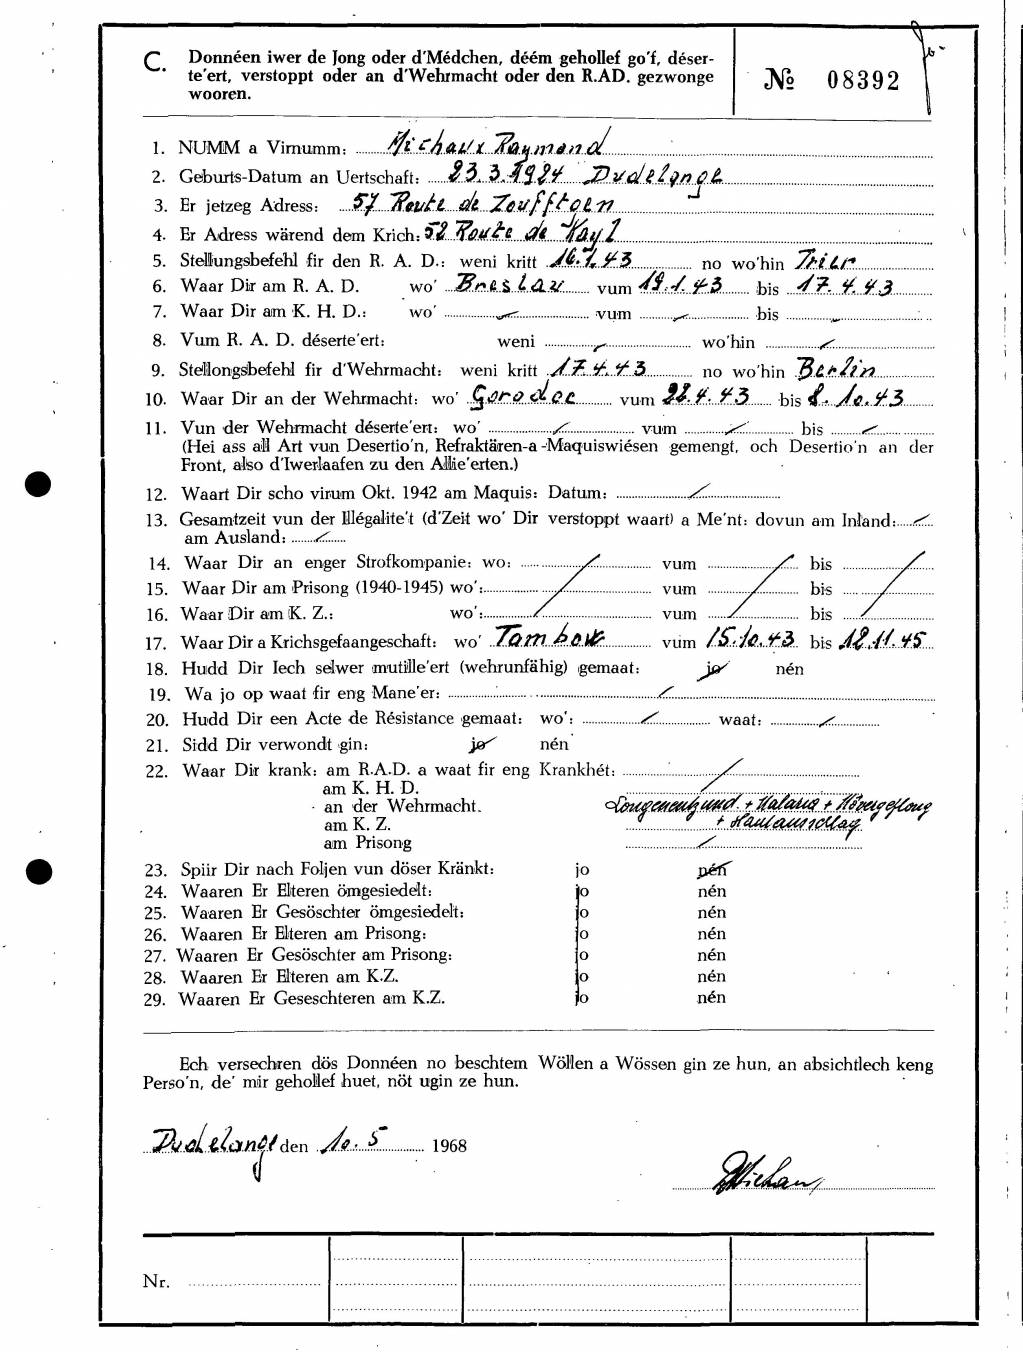 C. Donnéen iwer de Jong oder d'Médchen, déém gehollef go'f, déser-
te'ert, verstoppt oder an d'Wehrmacht oder den R.AD. gezwonge
wooren.
№ 08392
1. NUMM a Virnumm: Michaux Raymond
2. Geburts-Datum an Uertschaft: 23.3.1924 Dudelange
3. Er jetzeg Adress: 57 Route de Zoufftgen
4. Er Adress wärend dem Krich: 52 Route de Kayl
5. Stellungsbefehl fir den R. A. D.: weni kritt 16.1.43 no wo'hin Trier
6. Waar Dir am R. A. D. wo' Breslau vum 19.1.43 bis 17.4.43
7. Waar Dir am K. H. D.: wo' vum bis
8. Vum R. A. D. déserte'ert: weni wo'hin
9. Stellongsbefehl fir d'Wehrmacht: weni kritt 17.4.43 no wo'hin Berlin
10. Waar Dir an der Wehrmacht: wo' Gorodoc vum 22.4.43 bis 8.10.43
11. Vun der Wehrmacht déserte'ert: wo' vum bis
(Hei ass all Art vun Desertio'n, Refraktären-a-Maquiswiésen gemengt, och Desertio'n an der
Front, also d'Iwerlaafen zu den Allie'erten.)
12. Waart Dir scho virum Okt. 1942 am Maquis: Datum:
13. Gesamtzeit vun der Illégalite't (d'Zeit wo' Dir verstoppt waart) a Me'nt: dovun am Inland:
am Ausland:
14. Waar Dir an enger Strofkompanie: wo: vum bis
15. Waar Dir am Prisong (1940-1945) wo': vum bis
16. Waar Dir am K. Z.: wo': vum bis
17. Waar Dir a Krichsgefaangeschaft: wo' Tambow vum 15.10.43 bis 12.11.45
18. Hudd Dir Iech selwer mutille'ert (wehrunfähig) gemaat: jo nén
19. Wa jo op waat fir eng Mane'er:
20. Hudd Dir een Acte de Résistance gemaat: wo': waat:
21. Sidd Dir verwondt gin: jo nén
22. Waar Dir krank: am R.A.D. a waat fir eng Krankhét:
am K. H. D.
an der Wehrmacht. + Malaria +
am K. Z. + Hautausschlag
am Prisong
23. Spiir Dir nach Foljen vun döser Kränkt: jo nén
24. Waaren Er Elteren ömgesiedelt: jo nén
25. Waaren Er Gesöschter ömgesiedelt: jo nén
26. Waaren Er Elteren am Prisong: jo nén
27. Waaren Er Gesöschter am Prisong: jo nén
28. Waaren Er Elteren am K.Z. jo nén
29. Waaren Er Geseschteren am K.Z. jo nén
Ech versechren dös Donnéen no beschtem Wöllen a Wössen gin ze hun, an absichtlech keng
Perso'n, de' mir gehollef huet, nöt ugin ze hun.
Dudelange den 10.5 1968
Nr.